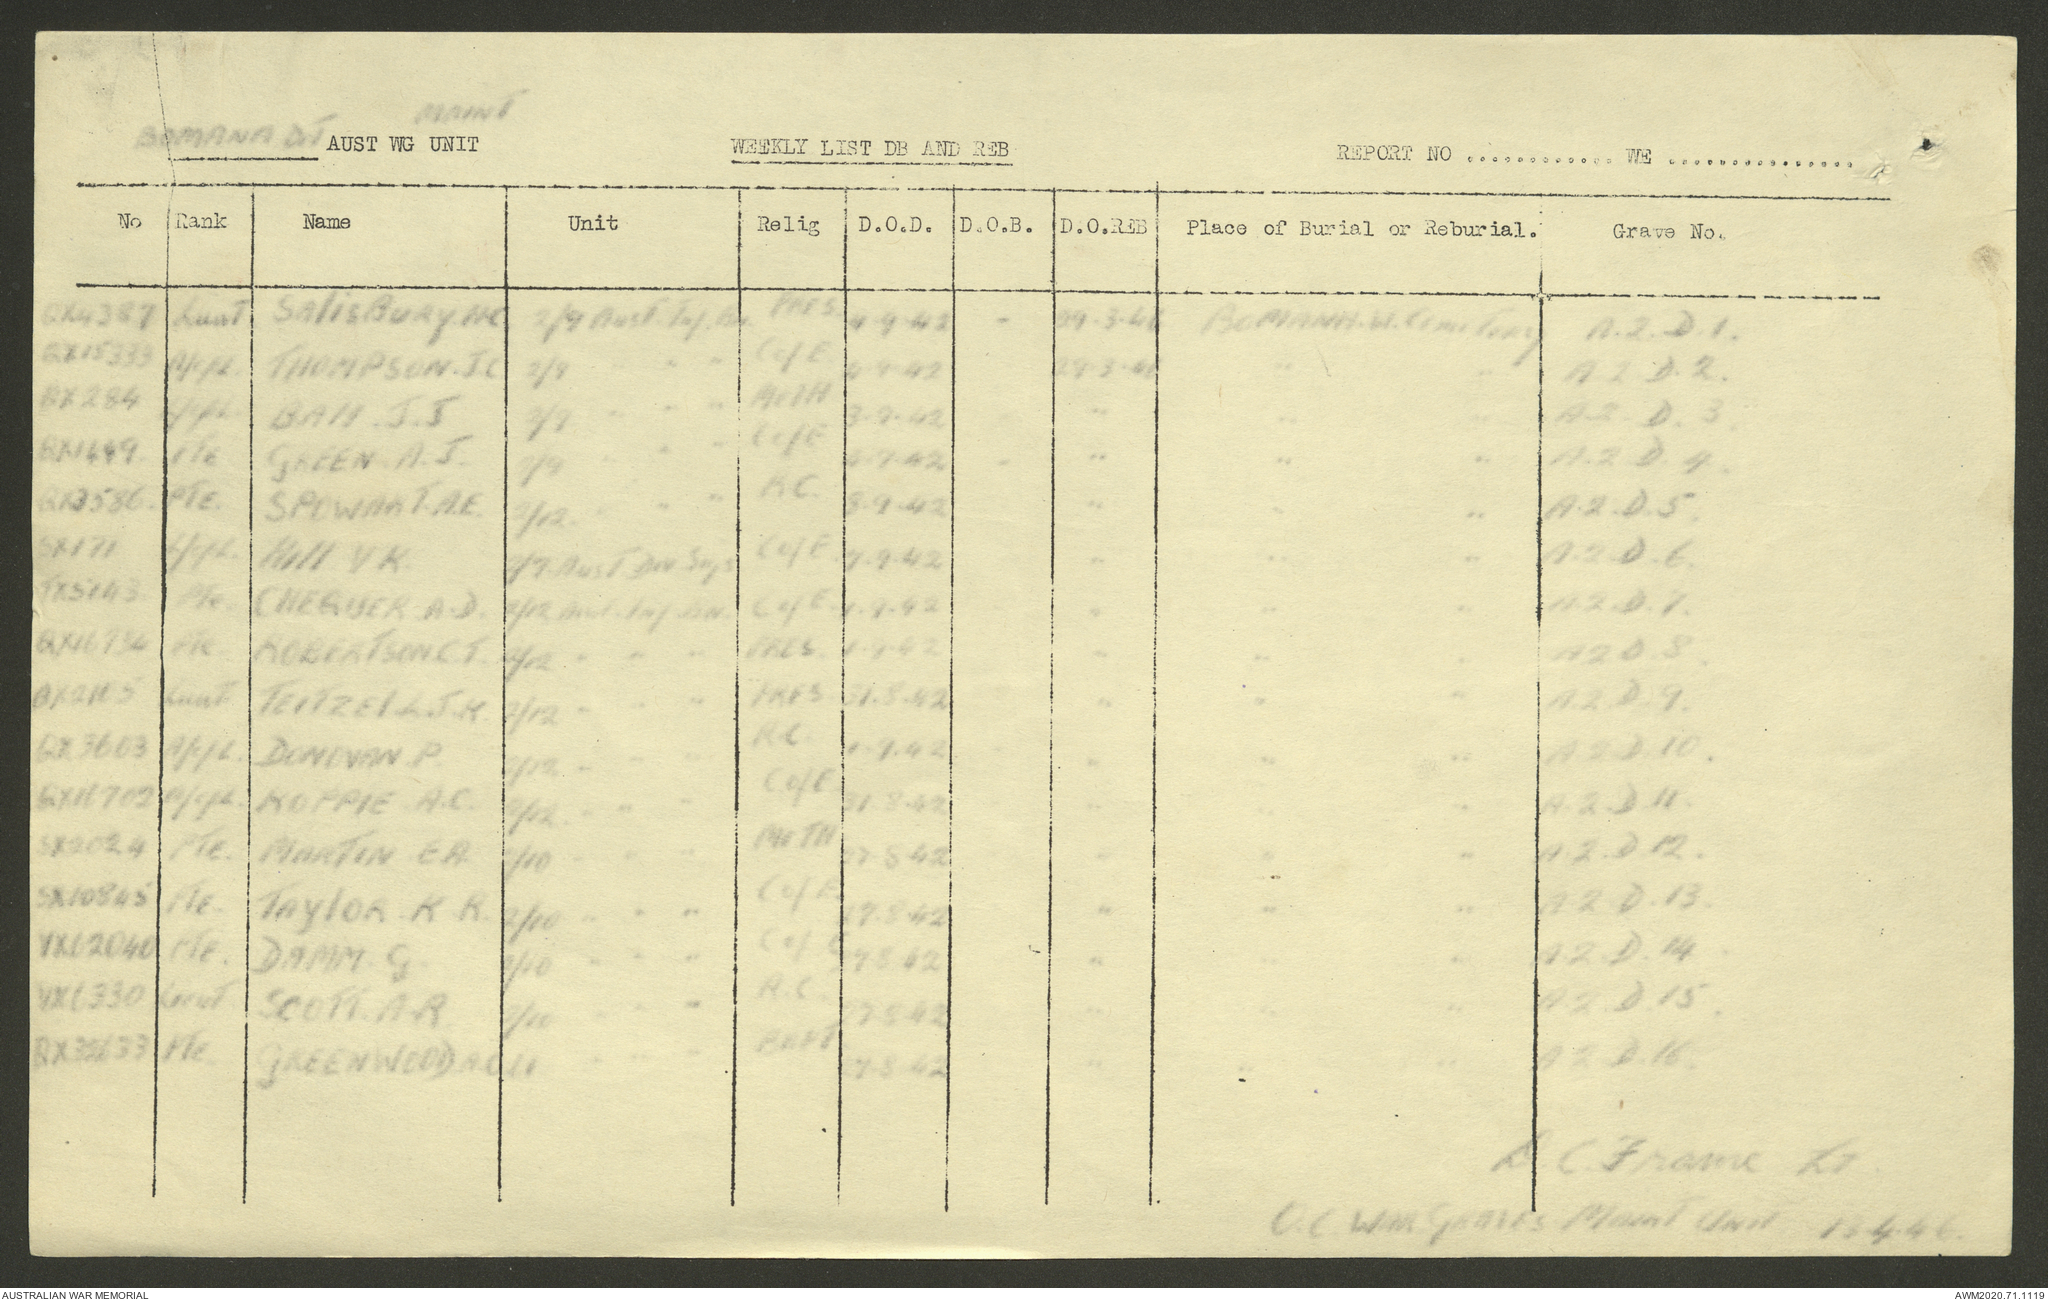 MAINT
BOMANA DT AUST WG UNIT WEEKLY LIST DB AND REB REPORT NO ............ WE ................
No Rank Name Unit Relig D.O.D. D.O.B. D.O.REB Place of Burial or Reburial. Grave No.
QX4387 Lieut SALISBURY.N.C. 2/9 Aust. Inf. Bn. PRES 4-9-42 - 29-3-46 BOMANA.W.Cemetery A.2.D.1.
QX15333 A/CpL. THOMPSON.J.C 2/9 " " " C of E 4-9-42 29-3-46 " " A.2.D.2.
QX284 BALL.J.J 2/9 " " " METH 3-9-42 " " " A.2.D.3.
Pte GREEN.A.J. 2/9 " " " C of E 4-9-42 - " " " A.2.D.4.
QX3586 Pte. SPOWART.A.E. 2/12. " " " R.C. 3-9-42 " " " A.2.D.5.
SX171 HILL V K. C of E 4.9.42 " " " A.2.D.6.
TX5143 Pte. CHEQUER A.D. 2/12 Aust. Inf. Bn. C of E. 1.9.42 " " " A.2.D.7.
QX16734 Pte ROBERTSON C.T. 2/12 " " " PRES. 1-9-42 " " " A.2.D.8.
Lieut TEITZEL.L.J.K. 2/12 " " " PRES 31.8.42 " " " A.2.D.9.
QX3603 A/CpL. DONOVAN.P. 2/12 " " " R.C. 1-9-42 " " " A.2.D.10.
QX16702 A/CpL. KOPPIE A.C. 2/12. " " " C of E 31.8.42 " " A.2.D.11.
SX2024 PTE. MARTIN E.A. 2/10 " " " METH 27.8.42 " " " A.2.D.12.
SX10845 PTE. TAYLOR.K R. 2/10 " " " C of E. 27.8.42 " " " A.2.D.13.
VX62040 PTE. DAMM.G. 2/10 " " " C of E 27.8.42 " " " A.2.D.14
VX6330 Lieut SCOTT.A.R. 2/10 " " " R.C. 27.8.42 " " " A.2.D.15.
PTE. GREENWOOD " " " BAPT 27.8.42 " " " A.2.D.16.
C. Frame Lt.
O.C. War Graves Maint Unit 4.46.
AUSTRALIAN WAR MEMORIAL AWM2020.71.1119